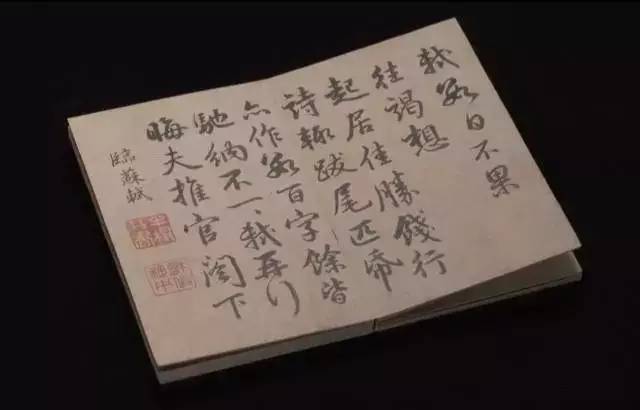 軾數日不果
往謁想
起居佳勝餞行
詩輒跋尾匹帛
亦作數百字餘皆
馳納不一一軾再行
晦夫推官閣下
臨蘇軾